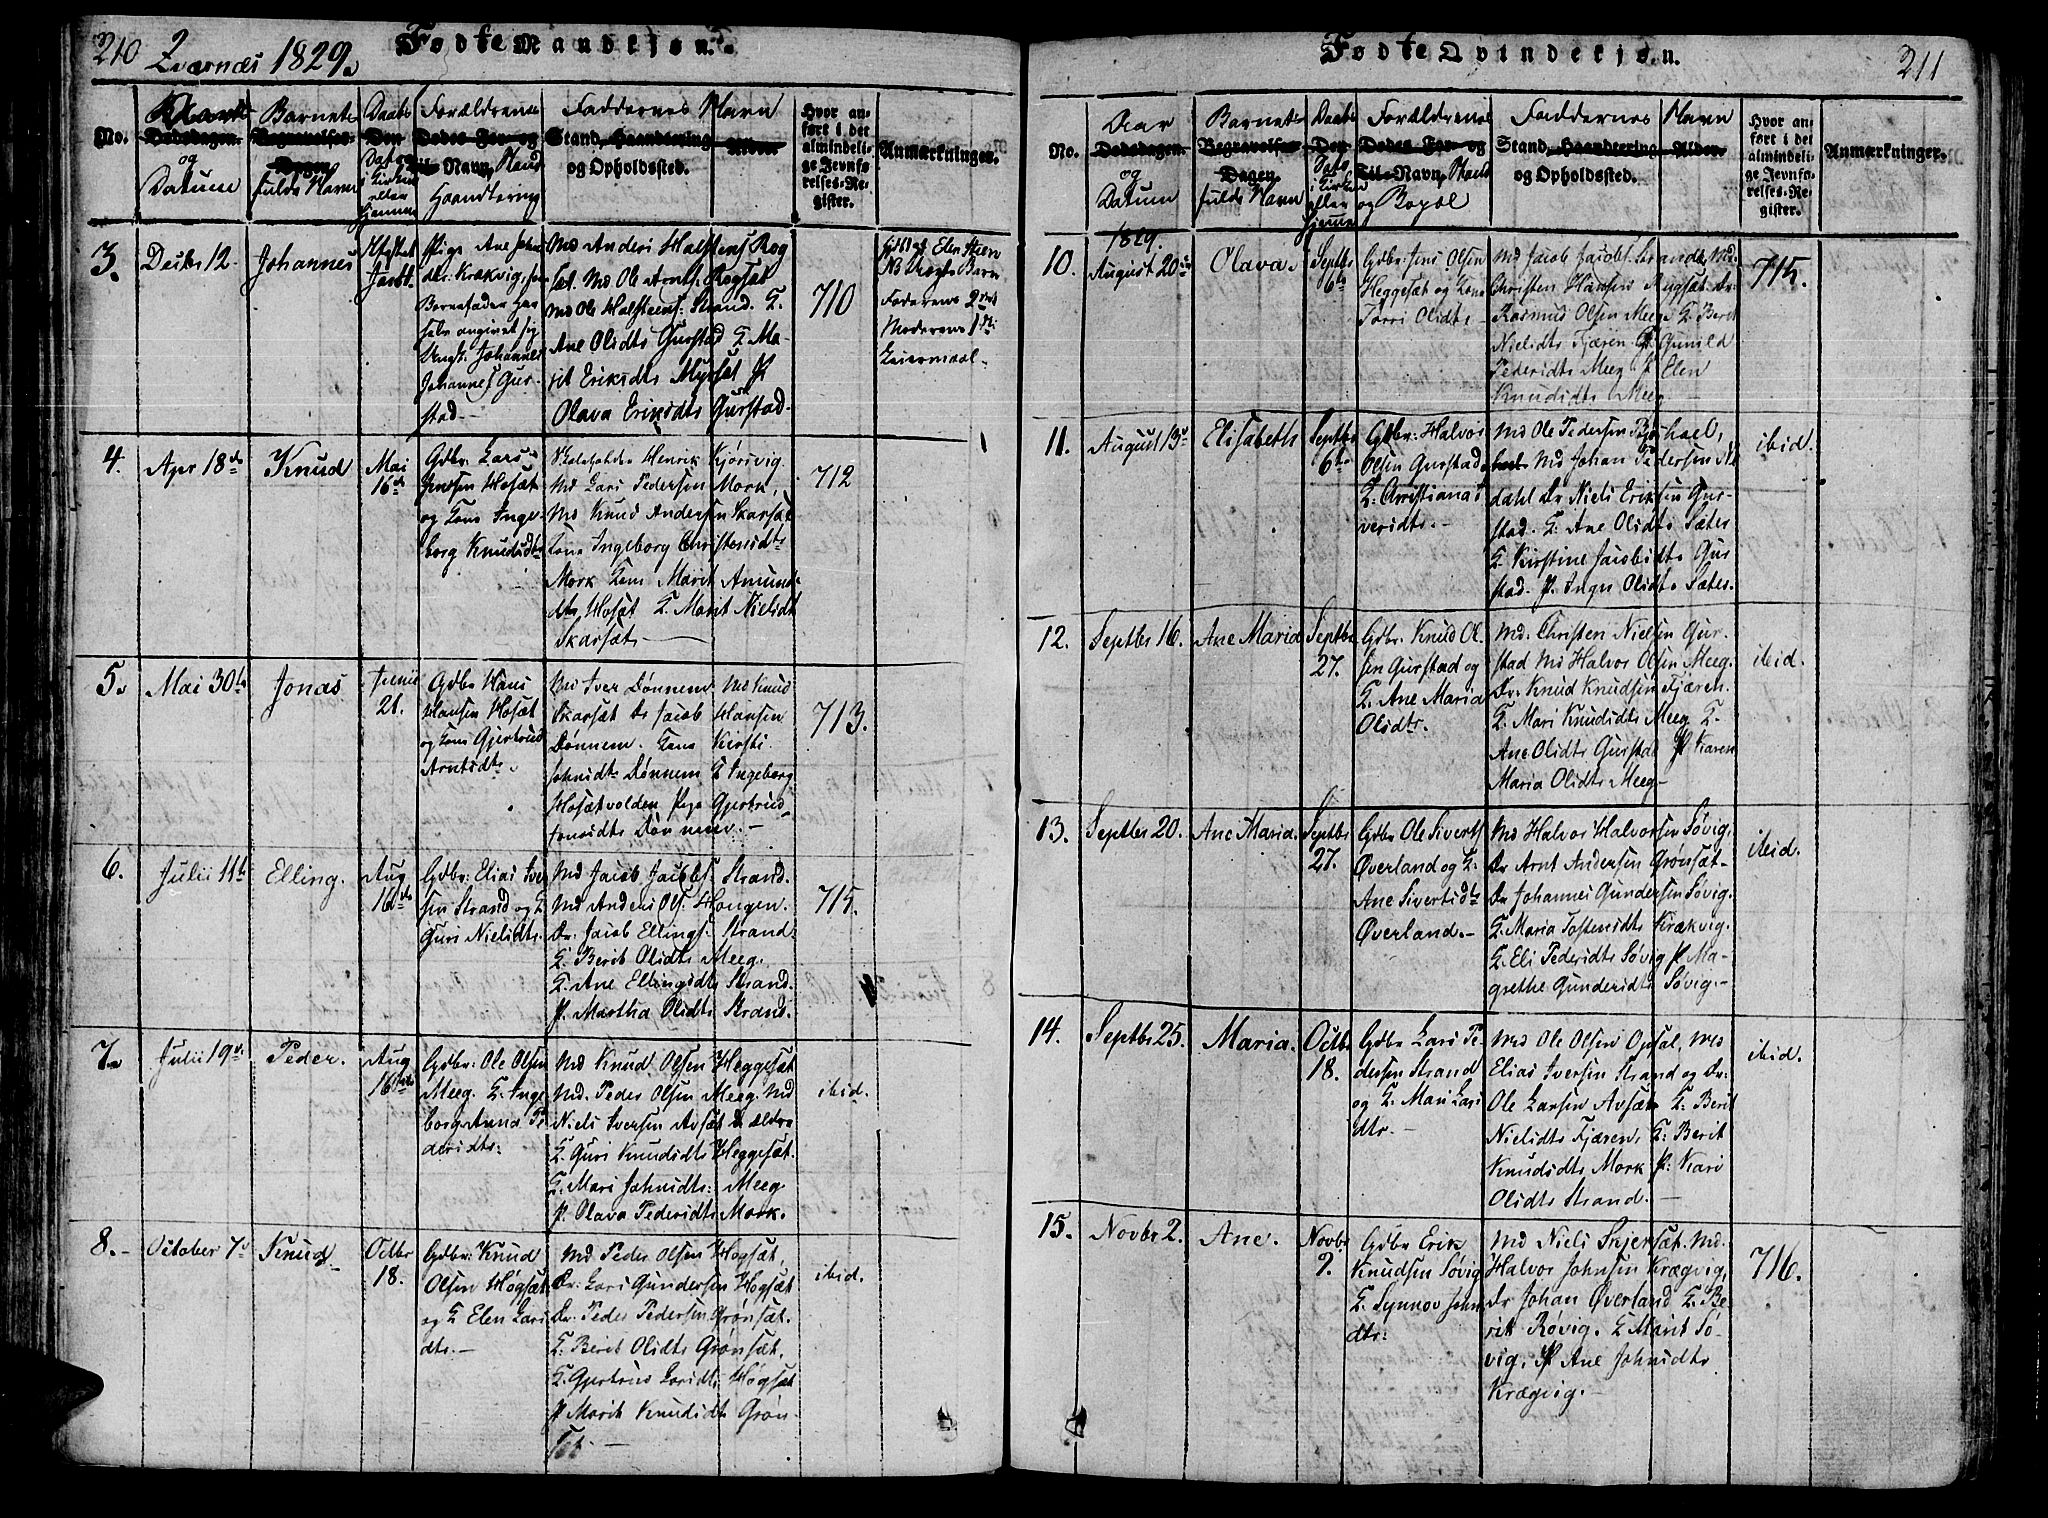 210 Zværnæs 1829. Fødte Mandkjøn.
No.
Aar og Datum
Barnets fulde Navn
Daabs
Forældrenes Navn, Stand Haandtering
Faddernes Navn
Stand, Haandtering og Opholdssted.
Hvor anført i det almindelige Jevnførelses-Register.
Anmærkninger.
3.
Decbr 12.
Johannes
Pige Ane John
dtr. Krækvig,
Barnefader har
selv angivet sig
Ungk. Johannes
Johannes Gur-
stad.-
Md Anders Halstens Rog
sæt. Md Ole Arnts. Rogsæt
Md Ole Halstens: Strand. K.
Ane Olidtr Gurstad K Ma-
rit Eriksdtr Myrsæt P.
Olava Eriksdtr Gurstad.
710
Barn
Faderens 2det
Moderens 1ste
Leiermaal.
4.
Apr 18de
Knud
Mai
16de
Gdbr. Lars
Jensen Hosæt
og Kone Inge-
borg Knudsdtr
Skoleholder Henrik Kjørsvig.
Md Lars Pedersen Mork,
Md Knud Andersen Skarsæt
Kone Ingeborg Christensdtr
Mork Kone Marit Amund-
dtr Hosæt K. Marit Nielsdt
Skarsæt
712
5.
Mai 30te
Jonas
Junii
21.
Gdbr Hans
Hansen Hosæt
og Kone Gjertrud
Arntsdtr.
Md Iver Dønnem Md Knud
Skarsæt Dr Jacob Hansen
Dønnem. Kone Kirsti
Johnsdtr Dønnem K Ingeborg
Hosætvolden Pige Gjertrud
Jonsdtr Dønnem.-
713.
6.
Julii 11te
Elling.
Aug
16de
Gdbr. Elias Iver
sen Strand og K
Guri Nielsdtr.
Md Jacob Jacobs. Strand.
Md Anders Ols. Haugen.
Dr. Jacob Ellings. Strand.
K Berit Olidtr Meeg.
K. Ane Ellingsdtr Strand.
P. Martha Olidtr Strand.
715.
7.
Julii 19de
Peder.
Aug
16de
Gdbr: Ole Olsen
Meeg. K. Inge
borg Anna Pe
dersdtr:
Md Knud Olsen Heggesæt
Md. Peder Olsen Meeg. Md
Niels Iversen Avsæt d. ældre
K Guri Knudsdtr Heggesæt.
K. Mari Johnsdtr: Meeg.
P. Olava Pedersdtr Mork.
ibid.
8.-
October 7de
Knud.
Octbr
18.
Gdbr: Knud
Olsen Høgsæt
og K Elen Lars
dtr.-
Md Peder Olsen Høgsæt,
Dr. Lars Gundersen Høgsæt
Dr. Peder Pedersen Grønsæt.
K. Berit Olidtr Grønsæt.
K. Gjertrud Larsdtr Høgsæt
P Marit Knudsdtr Grøn-
sæt.-
ibid.
Fødte Qvindekjøn. 211
No.
Aar og Datum
Barnets fulde Navn
Daabs
Forældrenes Navn, Stand og Bopæl
Faddernes Navn
Stand, Haandtering og Opholdssted.
Hvor anført i det almindelige Jevnførelses-Register.
Anmærkninger.
1829.
10.
August 20de
Olava.
Septbr
6te
Gdbr: Jens Olsen
Heggesæt og Kone
Torri Olidtr
Md Jacob Jacobs. Strand, Md.
Christen Hansen Augsæt Dr.
Rasmus Olsen Meeg K. Berit
Nielsdtr Fjæren P. Gunild
Pedersdtr Meeg P Elen
Knudsdtr Meeg
715.
11.
August 13de
Elisabeth
Septbr
6te
Gdbr: Halvor
Olsen Gurstad
K: Christiana I
versdtr.-
Md Ole Pedersen
Md Johan Pedersen
dahl Dr Niels Eriksen Gur-
stad. K: Ane Olidtr Sæter
K Kirstine Jacobsdtr Gur
stad. P. Inger Olidtr Sæter.
ibid.
12.
Septbr 16.
Ane Maria
Septbr
27.
Gdbr: Knud Ol-
sen Gurstad og
K. Ane Maria
Olidtr.
Md. Christen Nielsen Gur-
stad Md Halvor Olsen Meeg.
Dr. Knud Knudsen Fjæren.
K. Mari Knudsdtr Meeg K.
Ane Olidtr Gurstad P. Karen
Maria Olidtr Meeg-
ibid.
13.
Septbr 20.
Ane Maria.
Septbr
27.
Gdbr Ole Siverts
Øverland og K.
Ane Sivertsdtr
Øverland.-
Md Halvor Halvorsen Søvig.
Dr Arnt Andersen Grønsæt-
Dr Johannes Gundersen Søvig.
K. Maria Tostensdtr Krækvig.
K. Eli Pedersdtr Søvig P. Ma-
grethe Gundersdtr Søvig.-
ibid.
14.
Septbr 25.
Maria.
Octbr
18.
Gdbr Lars Pe-
dersen Strand
og K. Mari Lars
dtr.-
Md Ole Olsen Opsal, Md
Elias Iversen Strand og Dr:
Ole Larsen Avsæt K. Berit
Nielsdtr Fjæren, K: Berit
Knudsdtr Mork P. Kari
Olidtr Strand.-
ibid.
15.
Novbr 2.
Ane.
Novbr
9.
Gdbr Erik
Knudsen Søvig
K. Synnov John
dtr:
Md Niels Skjersæt. Md.
Halvor Johnsen Krægvig,
Dr Johan Øverland K. Be-
rit Røvig. K Marit Sø-
vig. P Ane Johnsdtr
Krægvig.-
716.